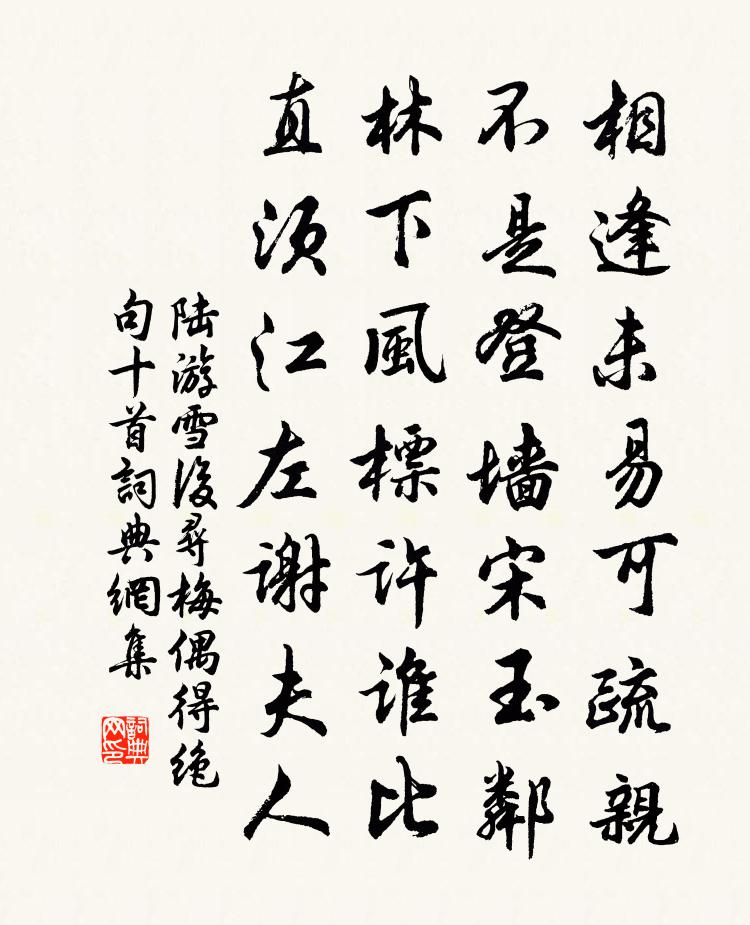 相逢未易可疏親
不是登墙宋玉鄰
林下風標許誰比
直須江左謝夫人
陸游雪後尋梅偶得绝
句十首詞典網集
詞典
网印